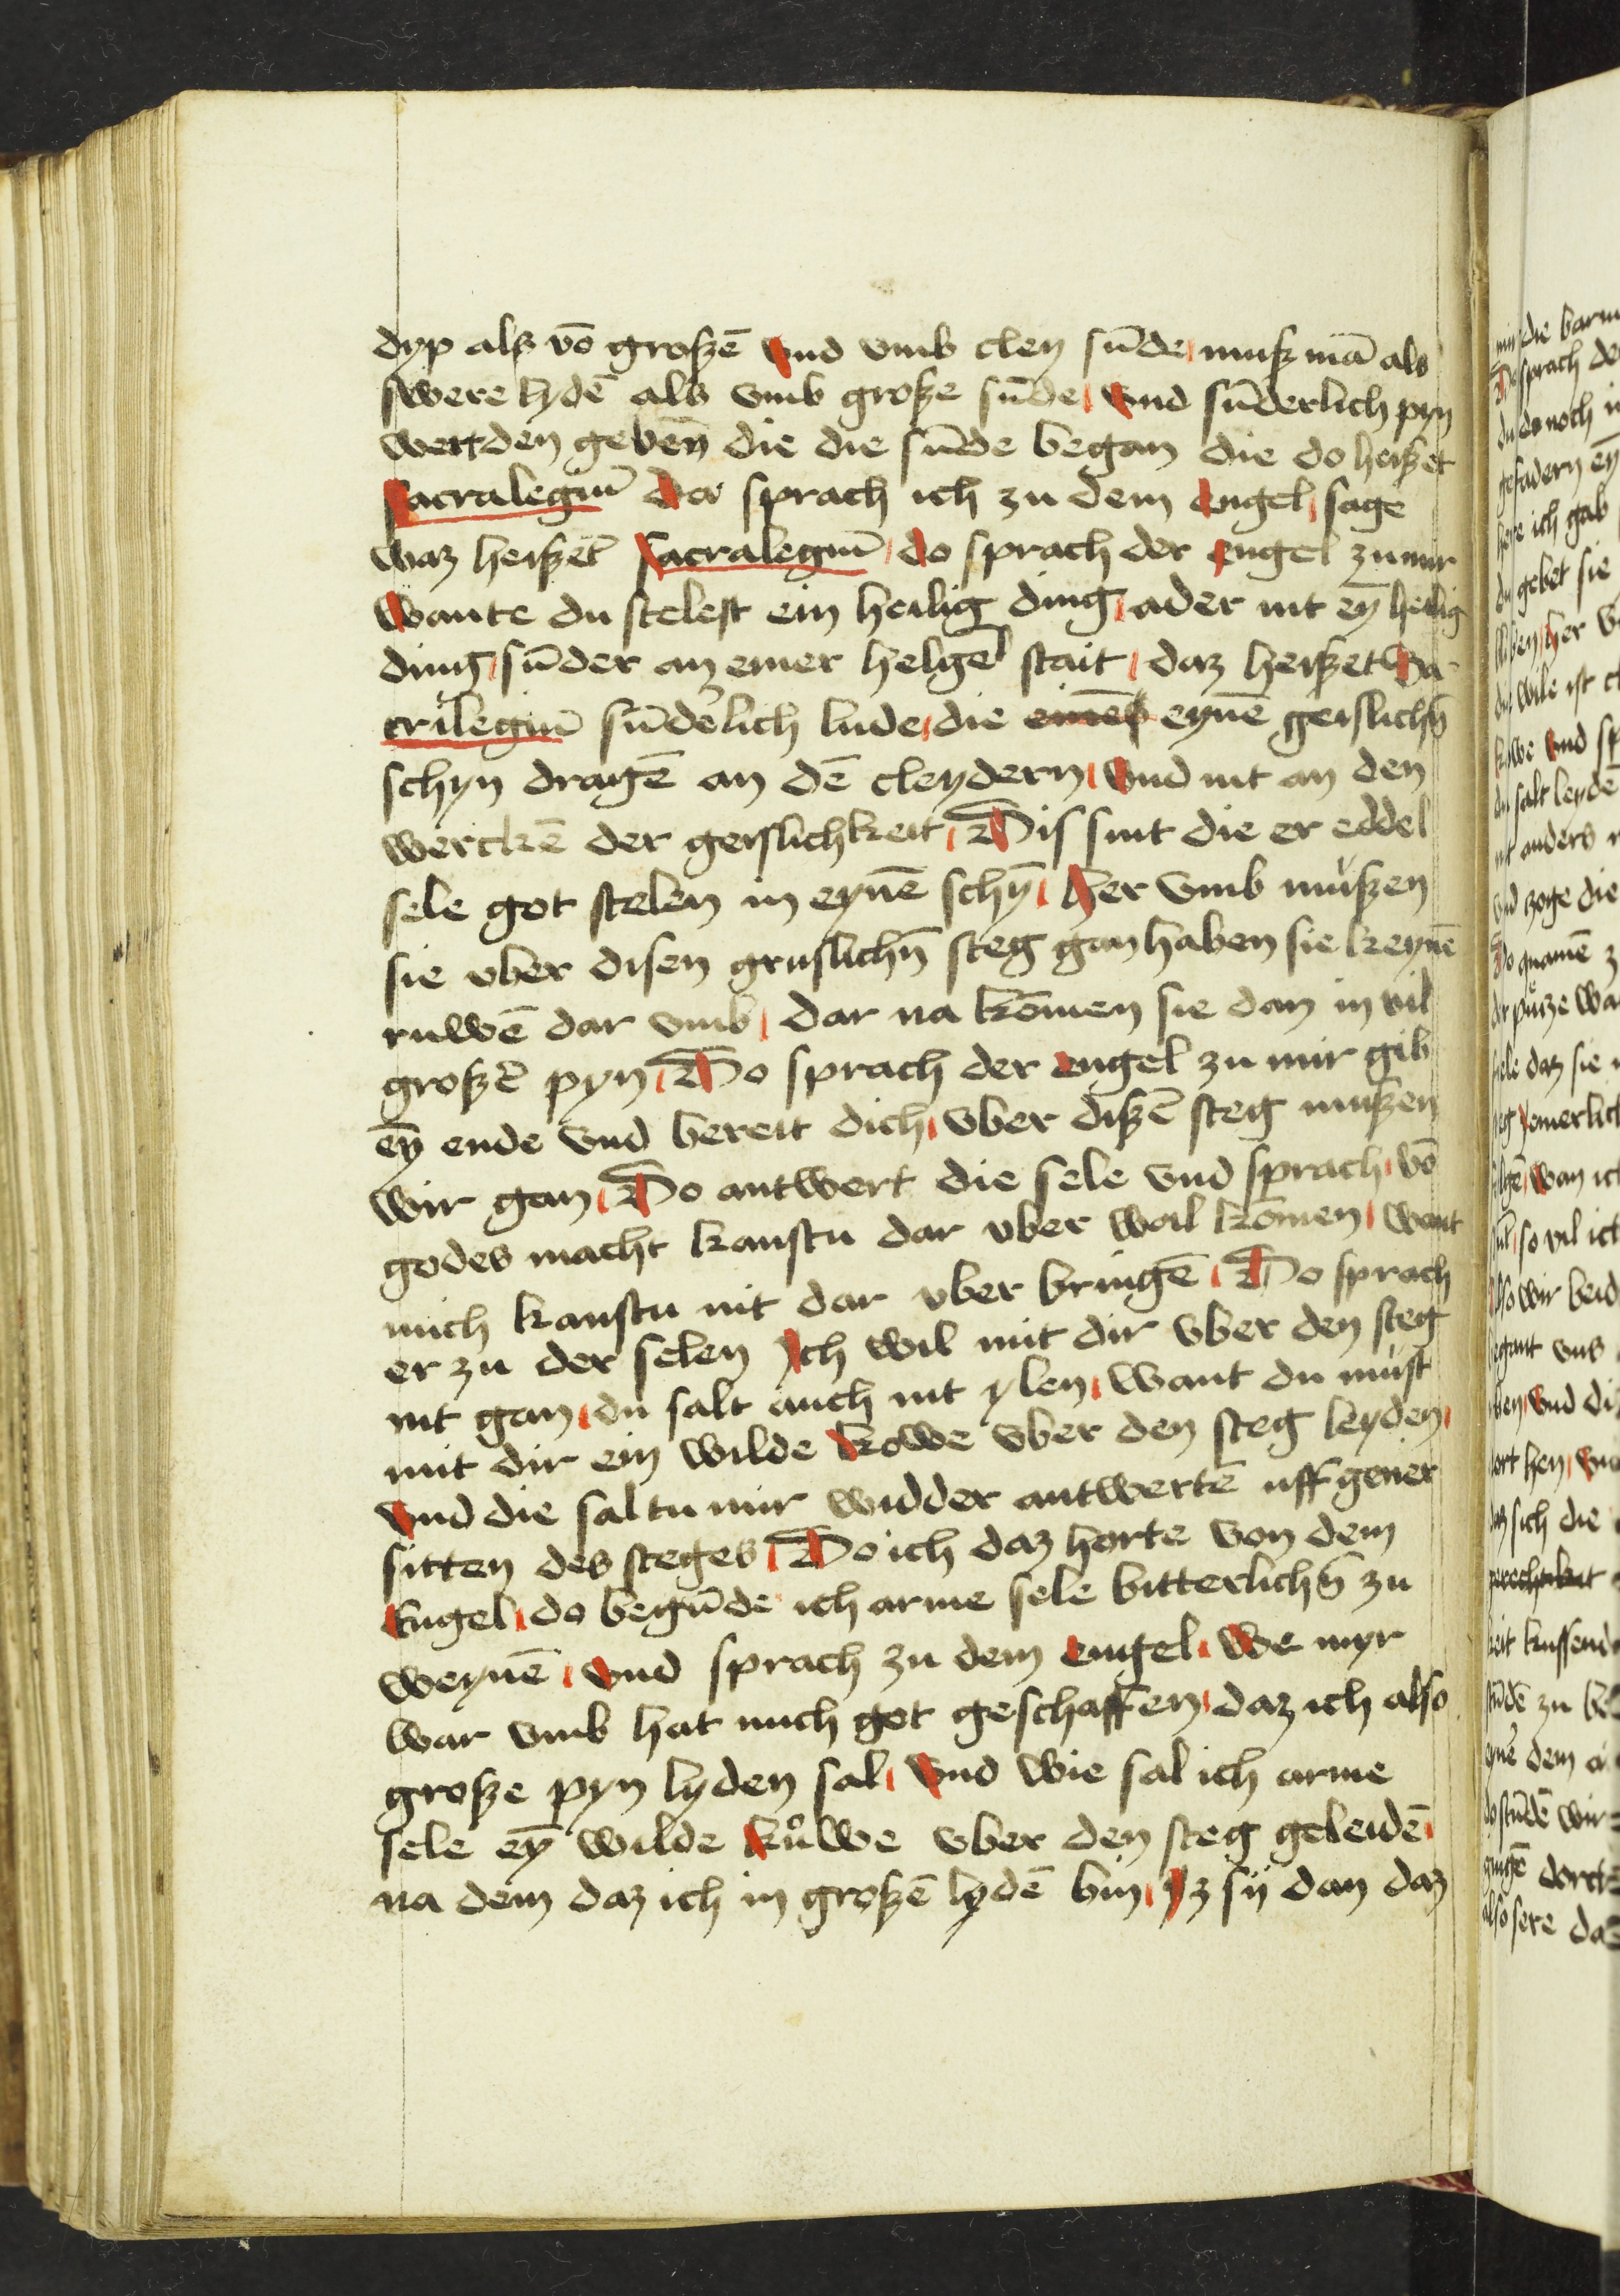 dyp als vō großē vnd vmb cleyn sūde muß mā als
swere lydē als vmb große sūde vnd sūderlich pyn
wertden geben die die sūde began die do heißet
sacralegiū do sprach ich zu dem engel sage
waz heißet sacralegiū do sprach der engel zu mir
wante du stelest ein heilig ding ader nit eȳ heilig
ding sūder an einer helgē stait daz heißet sa-
crilegiū sūderlich lude die eynē geislichē
schyn dragē an dē cleydern vnd nit an den
werckē der geislichkeit Dis sint die er eddel
sele got stelen in eynē schȳ her vmb mußen
sie vber disen gruslichē steg gan haben sie keynē
ruwē dar vmb dar na komen sie dan in vil
großē pyn Do sprach der engel zu mir gib
eȳ ende vnd bereit dich vber dißē steg mußen
wir gan Do antwert die sele vnd sprach vō
godes macht kanstu dar vber wail komen want
mich kanstu nit dar vber bringē Do sprach
er zu der selen Ich wil mit dir vber den steg
nit gan du salt auch nit ylen want du must
mit dir ein wilde kowe vber den steg leyden
vnd die saltu mir widder antwertē uff gener
sitten des steges Do ich daz horte von dem
Engel do begūde ich arme sele bitterlichē zu
weynē vnd sprach zu dem engel we myr
war vmb hat mich got geschaffen daz ich also
große pyn lyden sal vnd wie sal ich arme
sele eȳ wilde kůwe vber den steg geleidē
na dem daz ich in großē lydē bin Iz sij dan daz